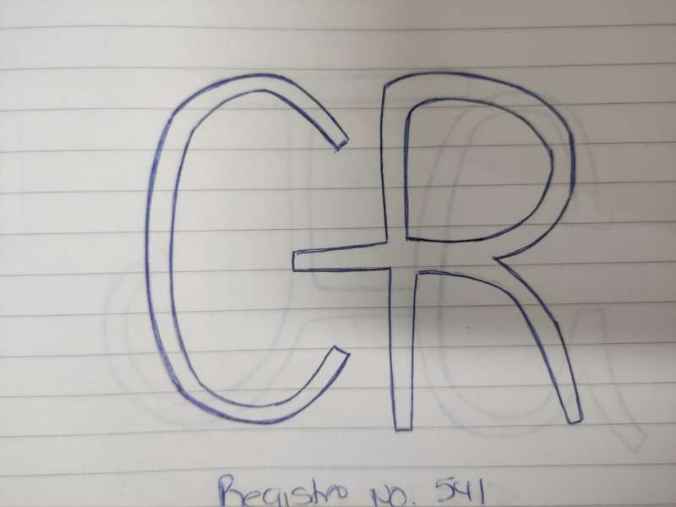 CR
Registro No. 541